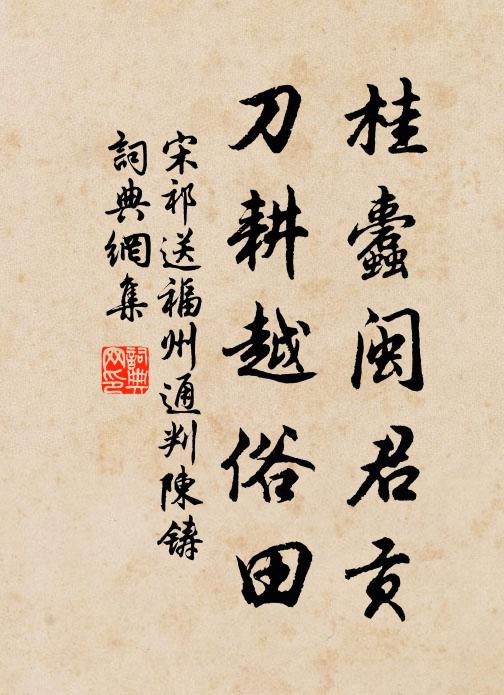 桂蠹閩君貢
刀耕越俗田
宋祁送福州通判陳鑄
詞典網集
詞典網印